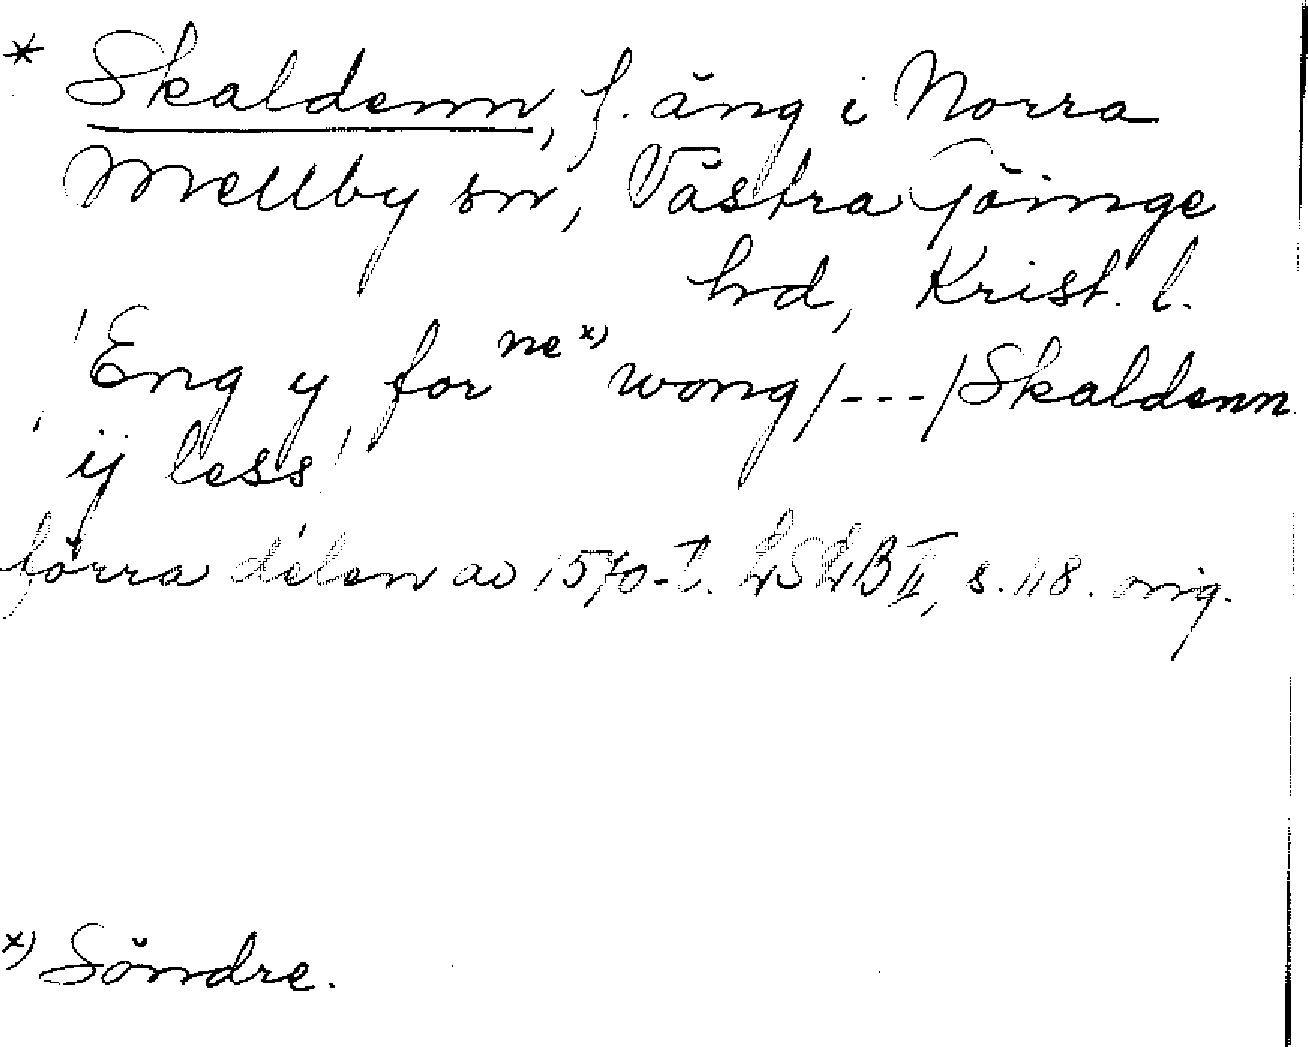 * Skaldenn, f. äng i Norra
Mellby sn, Västra Göinge
hd, Krist. l.
'Eng y for ne x) wong/---/Skaldenn
ij less'
förra delen av 1570-t. LSLB II, s. 118. orig.
x) Söndre.